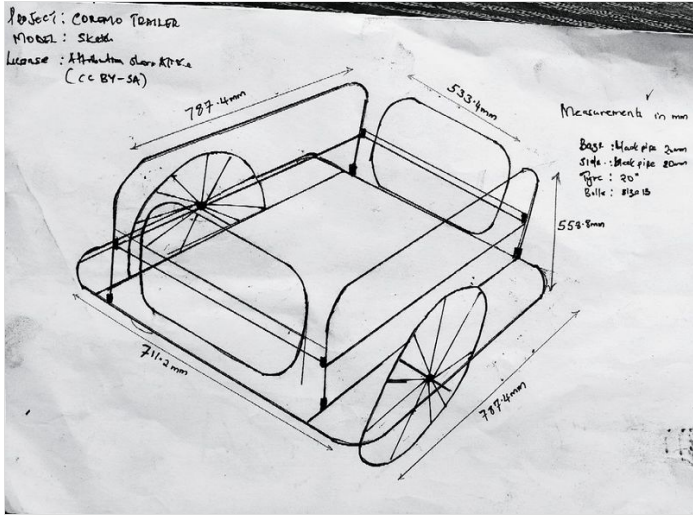 PROJECT: COROMO TRAILER
MODEL: Sketch
License: Attribution Share Alike
(CC BY-SA)
787.4mm
533.4mm
Measurements in mm
Side: Black pipe 20mm
Tyre: 20"
Bolts: size 13
711.2mm
787.4mm